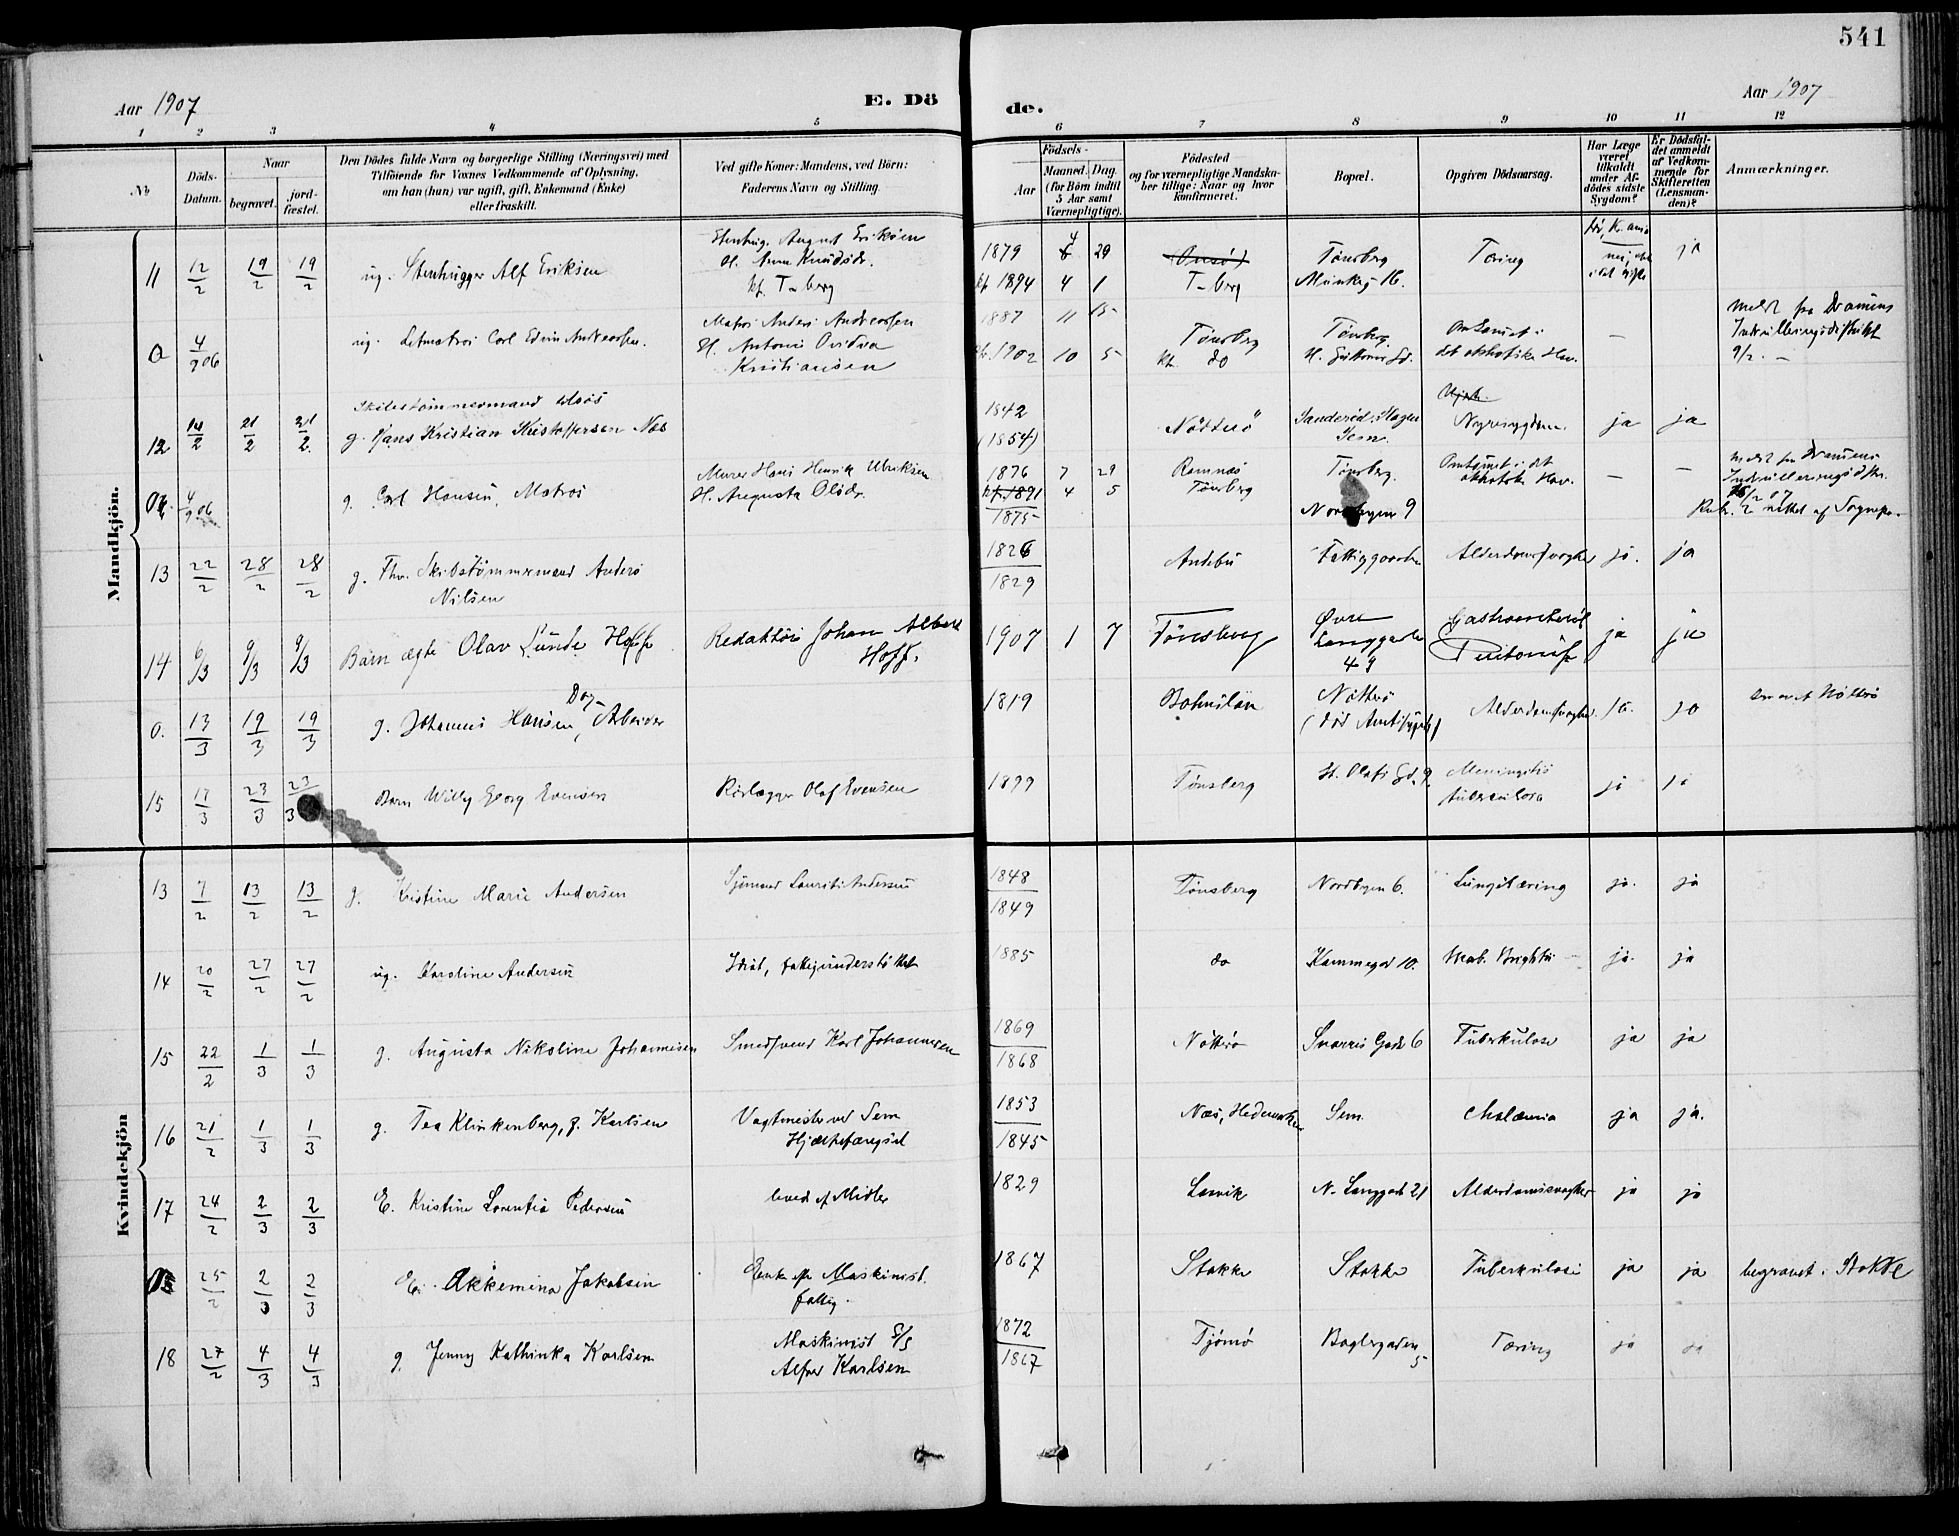 541
Aar 1907
E. Dö
de.
Aar 1907
1 2 3 4 5 6 7 8 9 10 11 12
No
Döds-Datum.
Naar
begravet.
jordfæstet.
Den Dödes fulde Navn og borgerlige Stilling (Næringsvei) med
Tilföiende for Voxnes Vedkommende af Oplysning,
om han (hun) var ugift, gift, Enkemand (Enke)
eller fraskilt.
Ved gifte Koner: Mandens, ved Börn:
Faderens Navn og Stilling.
Födsels-
Aar
Maaned. Dag.
(for Börn indtil
5 Aar samt
Værnepligtige).
Födested
og for værnepligtige Mandska-
ber tillige: Naar og hvor
konfirmeret.
Bopæl.
Opgiven Dödsaarsag.
Har Læge
været
tilkaldt
under Af-
dödes sidste
Sygdom?
Er Dödsfal-
det anmeldt
af Vedkom-
mende for
Skifteretten
(Lensman-
den)?
Anmærkninger.
Mandkjön.
11 12/2 19/2 19/2 ug. Stenhugger Alf Eriksen
Stenhug. August Eriksen
H. Anna Knudsdr.
kf. T-berg
1879 4 29 Tönsberg Tæring ja
kf. 1894 4 1 T-berg Munkeg 16.
0 4/9 06 ug. Letmatros Carl Edvin Andreassen.
Matros Anders Andreassen
H. Antonie Ovidia
Kristiansen
1887 11 15 Tönsberg Tønsberg Omkommet i —
kf. 1902 10 5 kf. do det okhotske Hav.
meldt fra Dramens
Inrulleringsdistrikt
9/2. —
12 14/2 21/2 21/2 Skibstømmermand
g. Hans Kristian Kristoffersen Næs
1842 (1854) Nötterö Sem. Nyresygdom. ja ja
4/9 06 g. Carl Hansen, Matros
Murer Hans Henrik Ulriksen
H. Augusta Olsdr.
1876 7 29 Ramnæs Tønsberg. Omkommet i det — —
kf. 1891 4 5 Tønsberg okhotske Hav.
1875 Nordbyen 9
meldt fra Dramens
Inrulleringsdistr.
Rub. 2 rettet af Sognepr.
13 22/2 28/2 28/2 g. Fhv. Skibstømmermand Anders
Nilsen
1826 1829 Andebu Fattiggaarden Alderdomssvaghed ja. ja
14 6/3 9/3 9/3 Barn ægte Olav Lunde Hoff
Redaktör Johan Albert
Hoff.
1907 1 7 Tönsberg Øvre
Langgade
49
Gastroenterit
Peritonit
ja ja
0. 13/3 19/3 19/3 g. Johannes Hansen, Dag-Arbeider
1819 Bohuslän Nötterö
(død Amtssygeh.)
Alderdomssvaghed. ja. ja
15 17/3 23/3 23/3 Barn Willy Georg Evensen
Rørlægger Olaf Evensen
1899 Tönsberg St. Olafs Gd. 9 Meningitis
tuberculosa
ja ja
Kvindekjön
13 7/2 13/2 13/2 g. Kristine Marie Andersen
Sjömand Laurits Andersen
1848 1849 Tönsberg Nordbyen 6. Lungetæring ja. ja
14 20/2 27/2 27/2 ug. Karoline Andersen
Idiot, fattigunderstöttet
1885 do Kammegad 10. Morb. Brightii ja. ja
15 22/2 1/3 1/3 g. Augusta Nikoline Johannesen
Smedsvend Karl Johannesen
1869 1868 Nötterö Svarres Gade 6 Tuberkulose ja ja
16 21/2 1/3 1/3 g. Tea Klinkenberg, f. Karlsen
Vagtmester ved Sem
Hjælpefængsel
1853 1845 Næs, Hedemarken Sem. Cholæmia ja ja.
17 24/2 2/3 2/3 E. Kristine Lorentia Pedersen
leved af Midler
1829 Larvik N. Langgade 21 Alderdomssvaghed ja ja
25/2 2/3 2/3 E. Akkemina Jakobsen
Enke efter Maskinist.
fattig.
1867 Stokke Stokke Tuberkulose ja ja begravet i Stokke
18 27/2 4/3 4/3 g. Jenny Kathinka Karlsen
Maskinist S/S
Alfred Karlsen
1872 1867 Tjömö Baglergaden
5
Tæring ja ja